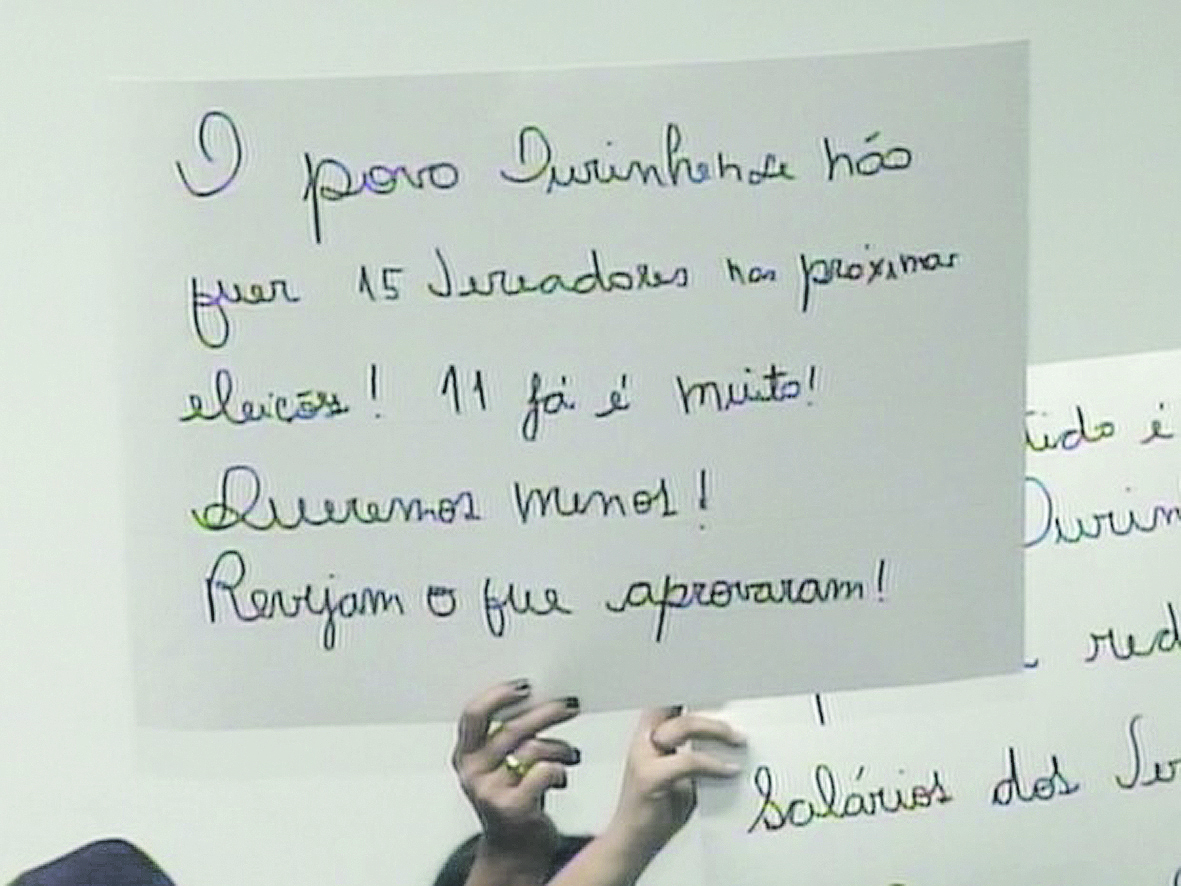 O povo Ourinhense não
quer 15 Vereadores nas próximas
eleições! 11 já é muito!
Queremos menos!
Revejam o que aprovaram!
é
red
Salários dos